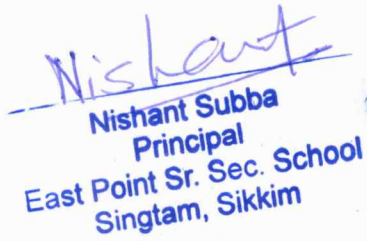 Nishant
Nishant Subba
Principal
East Point Sr. Sec. School
Singtam, Sikkim